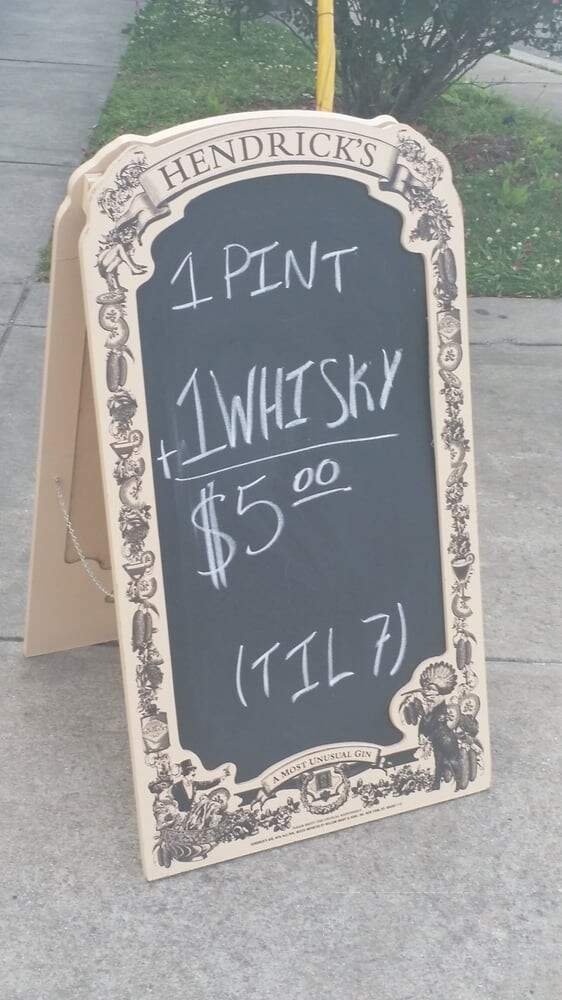 HENDRICK'S
1 PINT
+1 WHISKY
$5 00
(TIL 7)
A MOST UNUSUAL GIN